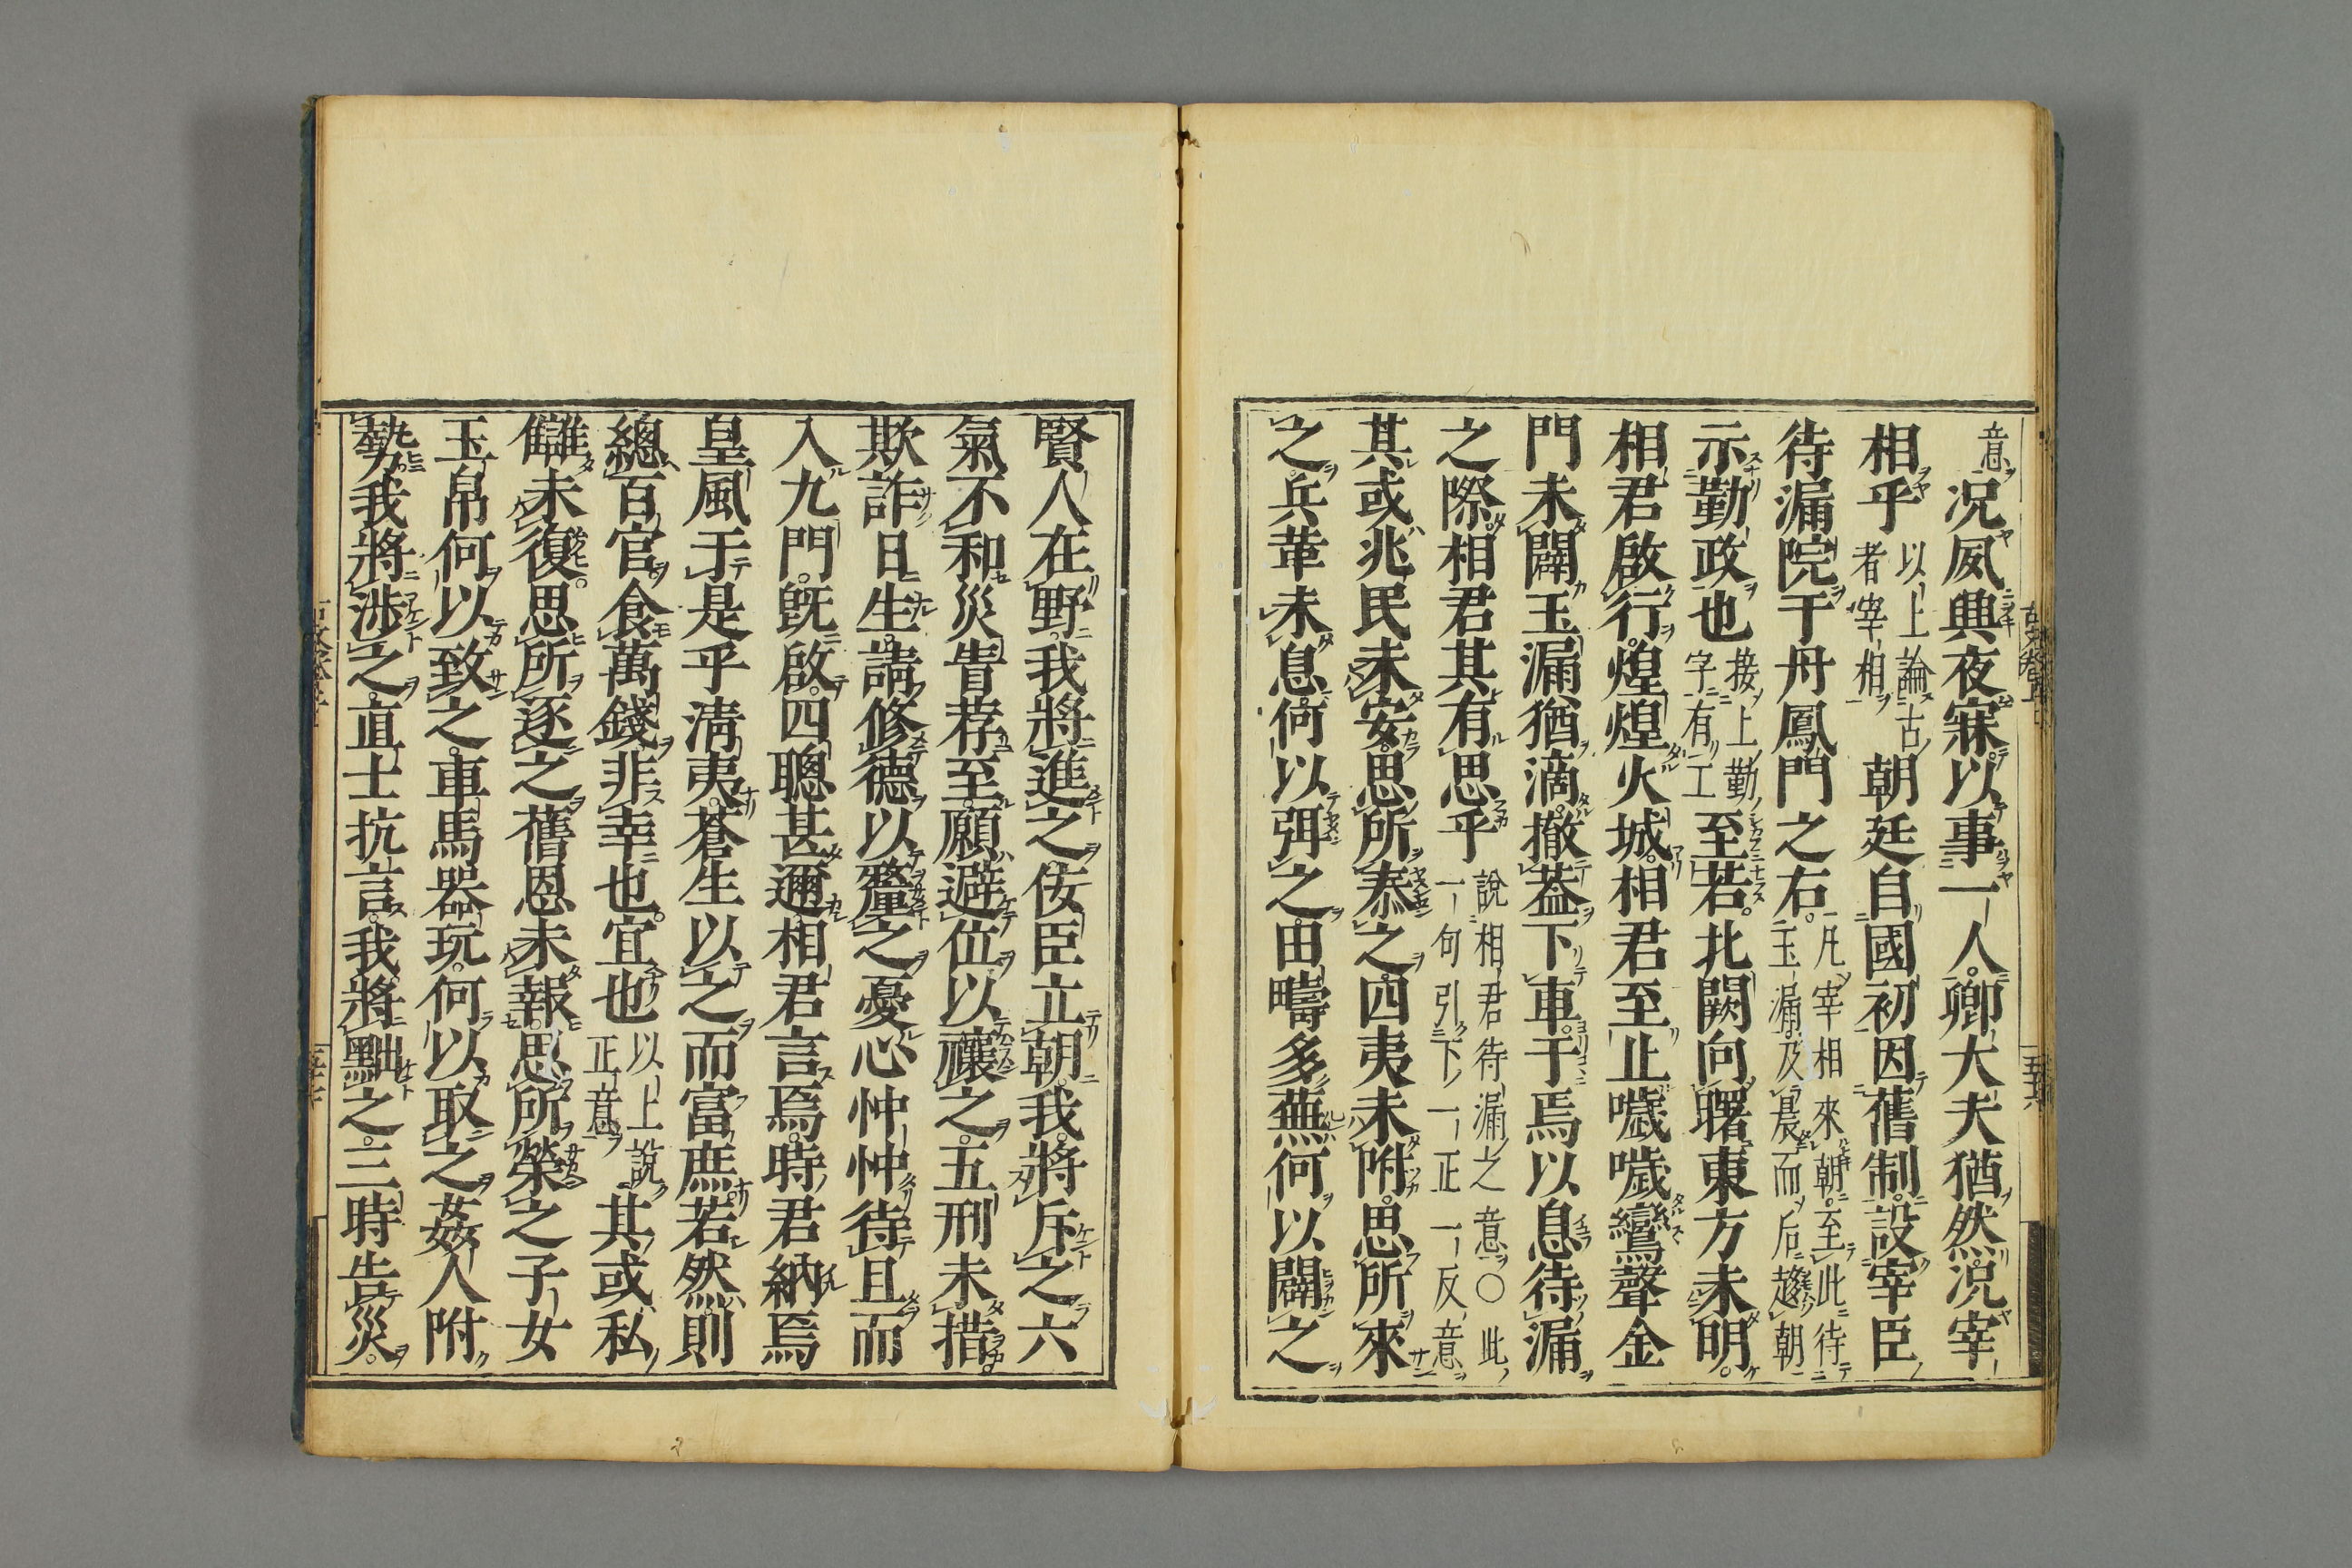 意况夙興夜寐以事一人卿大夫猶然况宰
相乎以上論古者宰相朝廷自國初因舊制設宰臣
待漏院于丹鳳門之右凡宰相來朝至此待玉漏及晨而后趨朝
示勤政也接上勤字有工至若北闕向曙東方未明
相君啟行煌煌火城相君至止噦噦鸞聲金
門未闢玉漏猶滴撤葢下車于焉以息待漏
之際相君其有思乎說相君待漏之意〇此一句引下一正一反意
其或兆民未安思所泰之四夷未附思所來
之兵革未息何以弭之田疇多蕪何以闢之
賢人在野我將進之佞臣立朝我將斥之六
氣不和災眚荐至願避位以禳之五刑未措
欺詐日生請修德以釐之憂心忡忡待旦而
入九門旣啟四聰甚邇相君言焉時君納焉
皇風于是乎淸夷蒼生以之而富庶若然則
總百官食萬錢非幸也宜也以上說正意其或私
讎未復思所逐之舊恩未報思所榮之子女
玉帛何以致之車馬器玩何以取之姦人附
勢我將陟之直士抗言我將黜之三時告災